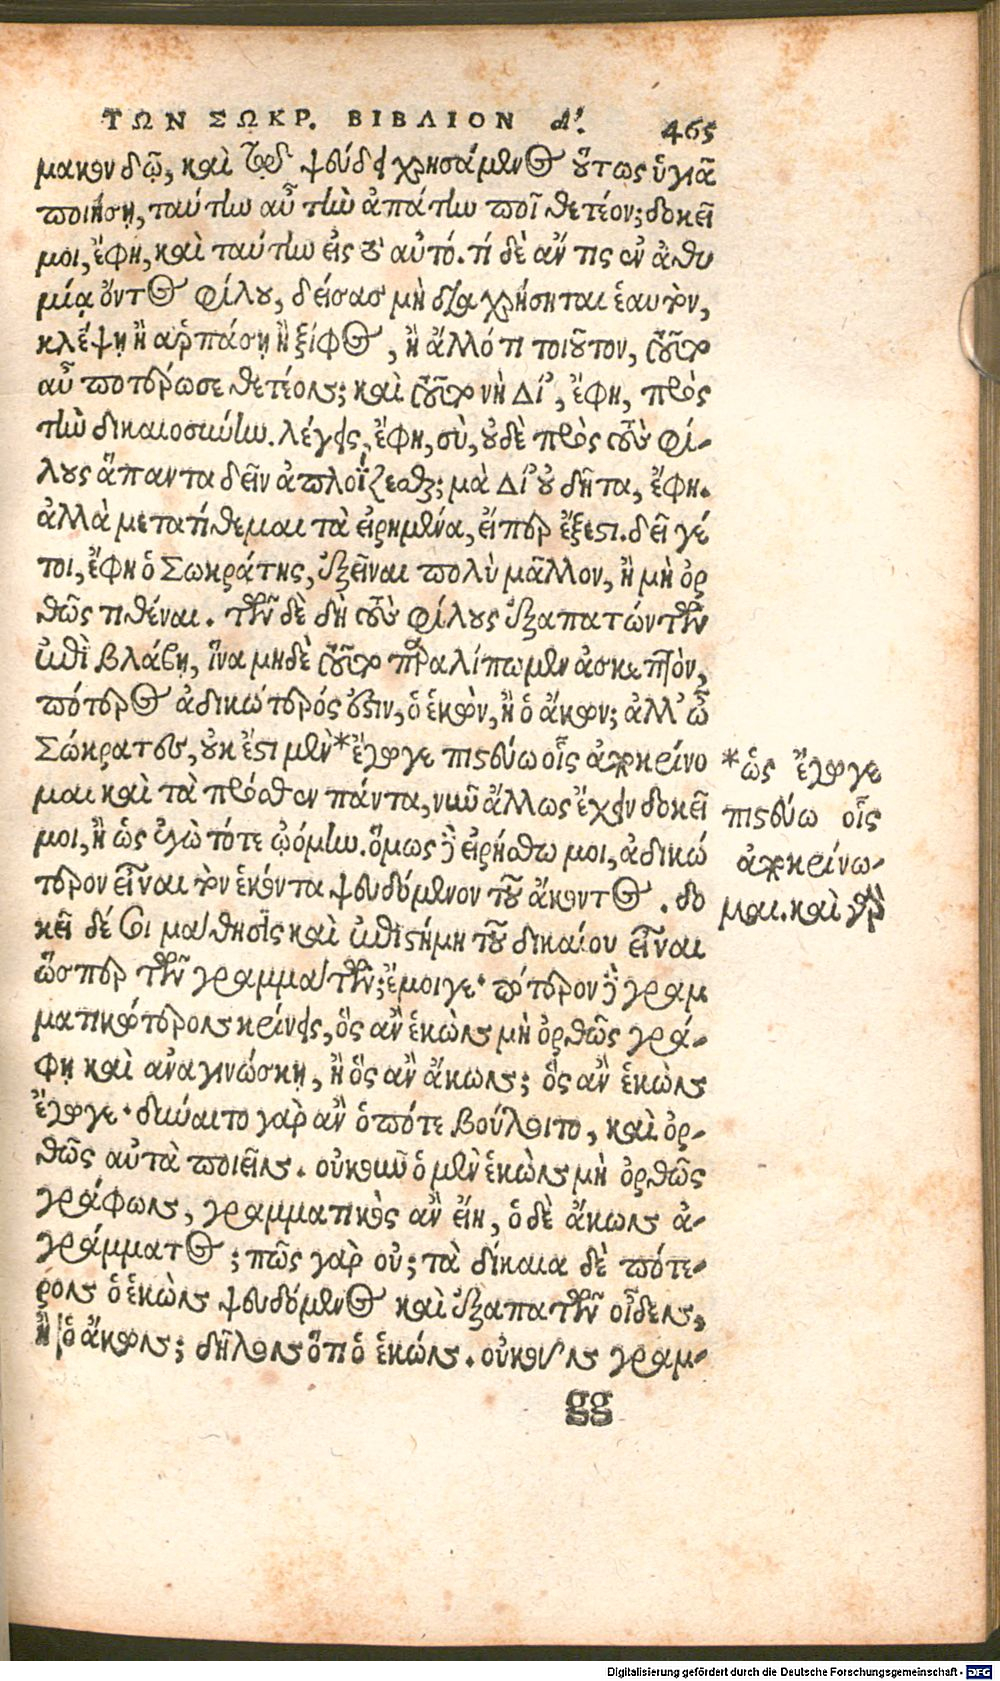 ΤΩΝ ΣΩΚΡ. ΒΙΒΛΙΟΝ δ'. 465
μακον δῷ, καὶ τῷ ψεύδει χρησάμενος οὕτως ὑγιᾶ
ποιήσῃ, ταύτην αὖ τὴν ἀπάτην ποῖ θετέον; δοκεῖ
μοι, ἔφη, καὶ ταύτην εἰς τὸ αὐτό. τί δὲ ἄν τις ἐν ἀθυ
μίᾳ ὄντος φίλου, δείσας μὴ διαχρήσηται ἑαυτὸν,
κλέψῃ ἢ ἁρπάσῃ ἢ ξίφος, ἢ ἄλλό τι τοιοῦτον, τοῦτο
αὖ ποτέρωσε θετέον; καὶ τοῦτο νὴ Δί', ἔφη, πρὸς
τὴν δικαιοσύνην. λέγεις, ἔφη, σὺ, οὐδὲ πρὸς τοὺς φί-
λους ἅπαντα δεῖν ἁπλοΐζεσθαι; μὰ Δί' οὐ δῆτα, ἔφη.
ἀλλὰ μετατίθεμαι τὰ εἰρημένα, εἴπερ ἔξεστι. δεῖ γέ
τοι, ἔφη ὁ Σωκράτης, ἐξεῖναι πολὺ μᾶλλον, ἢ μὴ ὀρ
θῶς τιθέναι. τῶν δὲ δὴ τοὺς φίλους ἐξαπατώντων
ἐπὶ βλάβῃ, ἵνα μηδὲ τοῦτο παραλίπωμεν ἄσκεπτον,
πότερος ἀδικώτερός ἐστιν, ὁ ἑκὼν, ἢ ὁ ἄκων; ἀλλ' ὦ
Σώκρατες, οὐκ ἔτι μὲν *ἔγωγε πιστεύω οἷς ἀποκρίνο
μαι καὶ τὰ πρόσθεν πάντα, νῦν ἄλλως ἔχειν δοκεῖ
μοι, ἢ ὡς ἐγὼ τότε ᾠόμην. ὅμως δὲ εἰρήσθω μοι, ἀδικώ
τερον εἶναι τὸν ἑκόντα ψευδόμενον τοῦ ἄκοντος. δο
κεῖ δέ σοι μάθησις καὶ ἐπιστήμη τοῦ δικαίου εἶναι
ὥσπερ τῶν γραμμάτων; ἔμοιγε· πότερον δὲ γραμ
ματικώτερον κρίνεις, ὃς ἂν ἑκὼν μὴ ὀρθῶς γρά-
φῃ καὶ ἀναγινώσκῃ, ἢ ὃς ἂν ἄκων; ὃς ἂν ἑκὼν
ἔγωγε· δύναιτο γὰρ ἂν ὁπότε βούλοιτο, καὶ ὀρ-
θῶς αὐτὰ ποιεῖν. οὐκοῦν ὁ μὲν ἑκὼν μὴ ὀρθῶς
γράφων, γραμματικὸς ἂν εἴη, ὁ δὲ ἄκων ἀ-
γράμματος; πῶς γὰρ οὐ; τὰ δίκαια δὲ πότε-
ρον ὁ ἑκὼν ψευδόμενος καὶ ἐξαπατῶν οἶδεν,
ἢ ὁ ἄκων; δῆλον ὅτι ὁ ἑκών. οὐκοῦν γραμ-
gg
*ὡς ἔγωγε
πιστεύω οἷς
ἀποκρίνο-
μαι. καὶ γὰρ
Digitalisierung gefördert durch die Deutsche Forschungsgemeinschaft - DFG